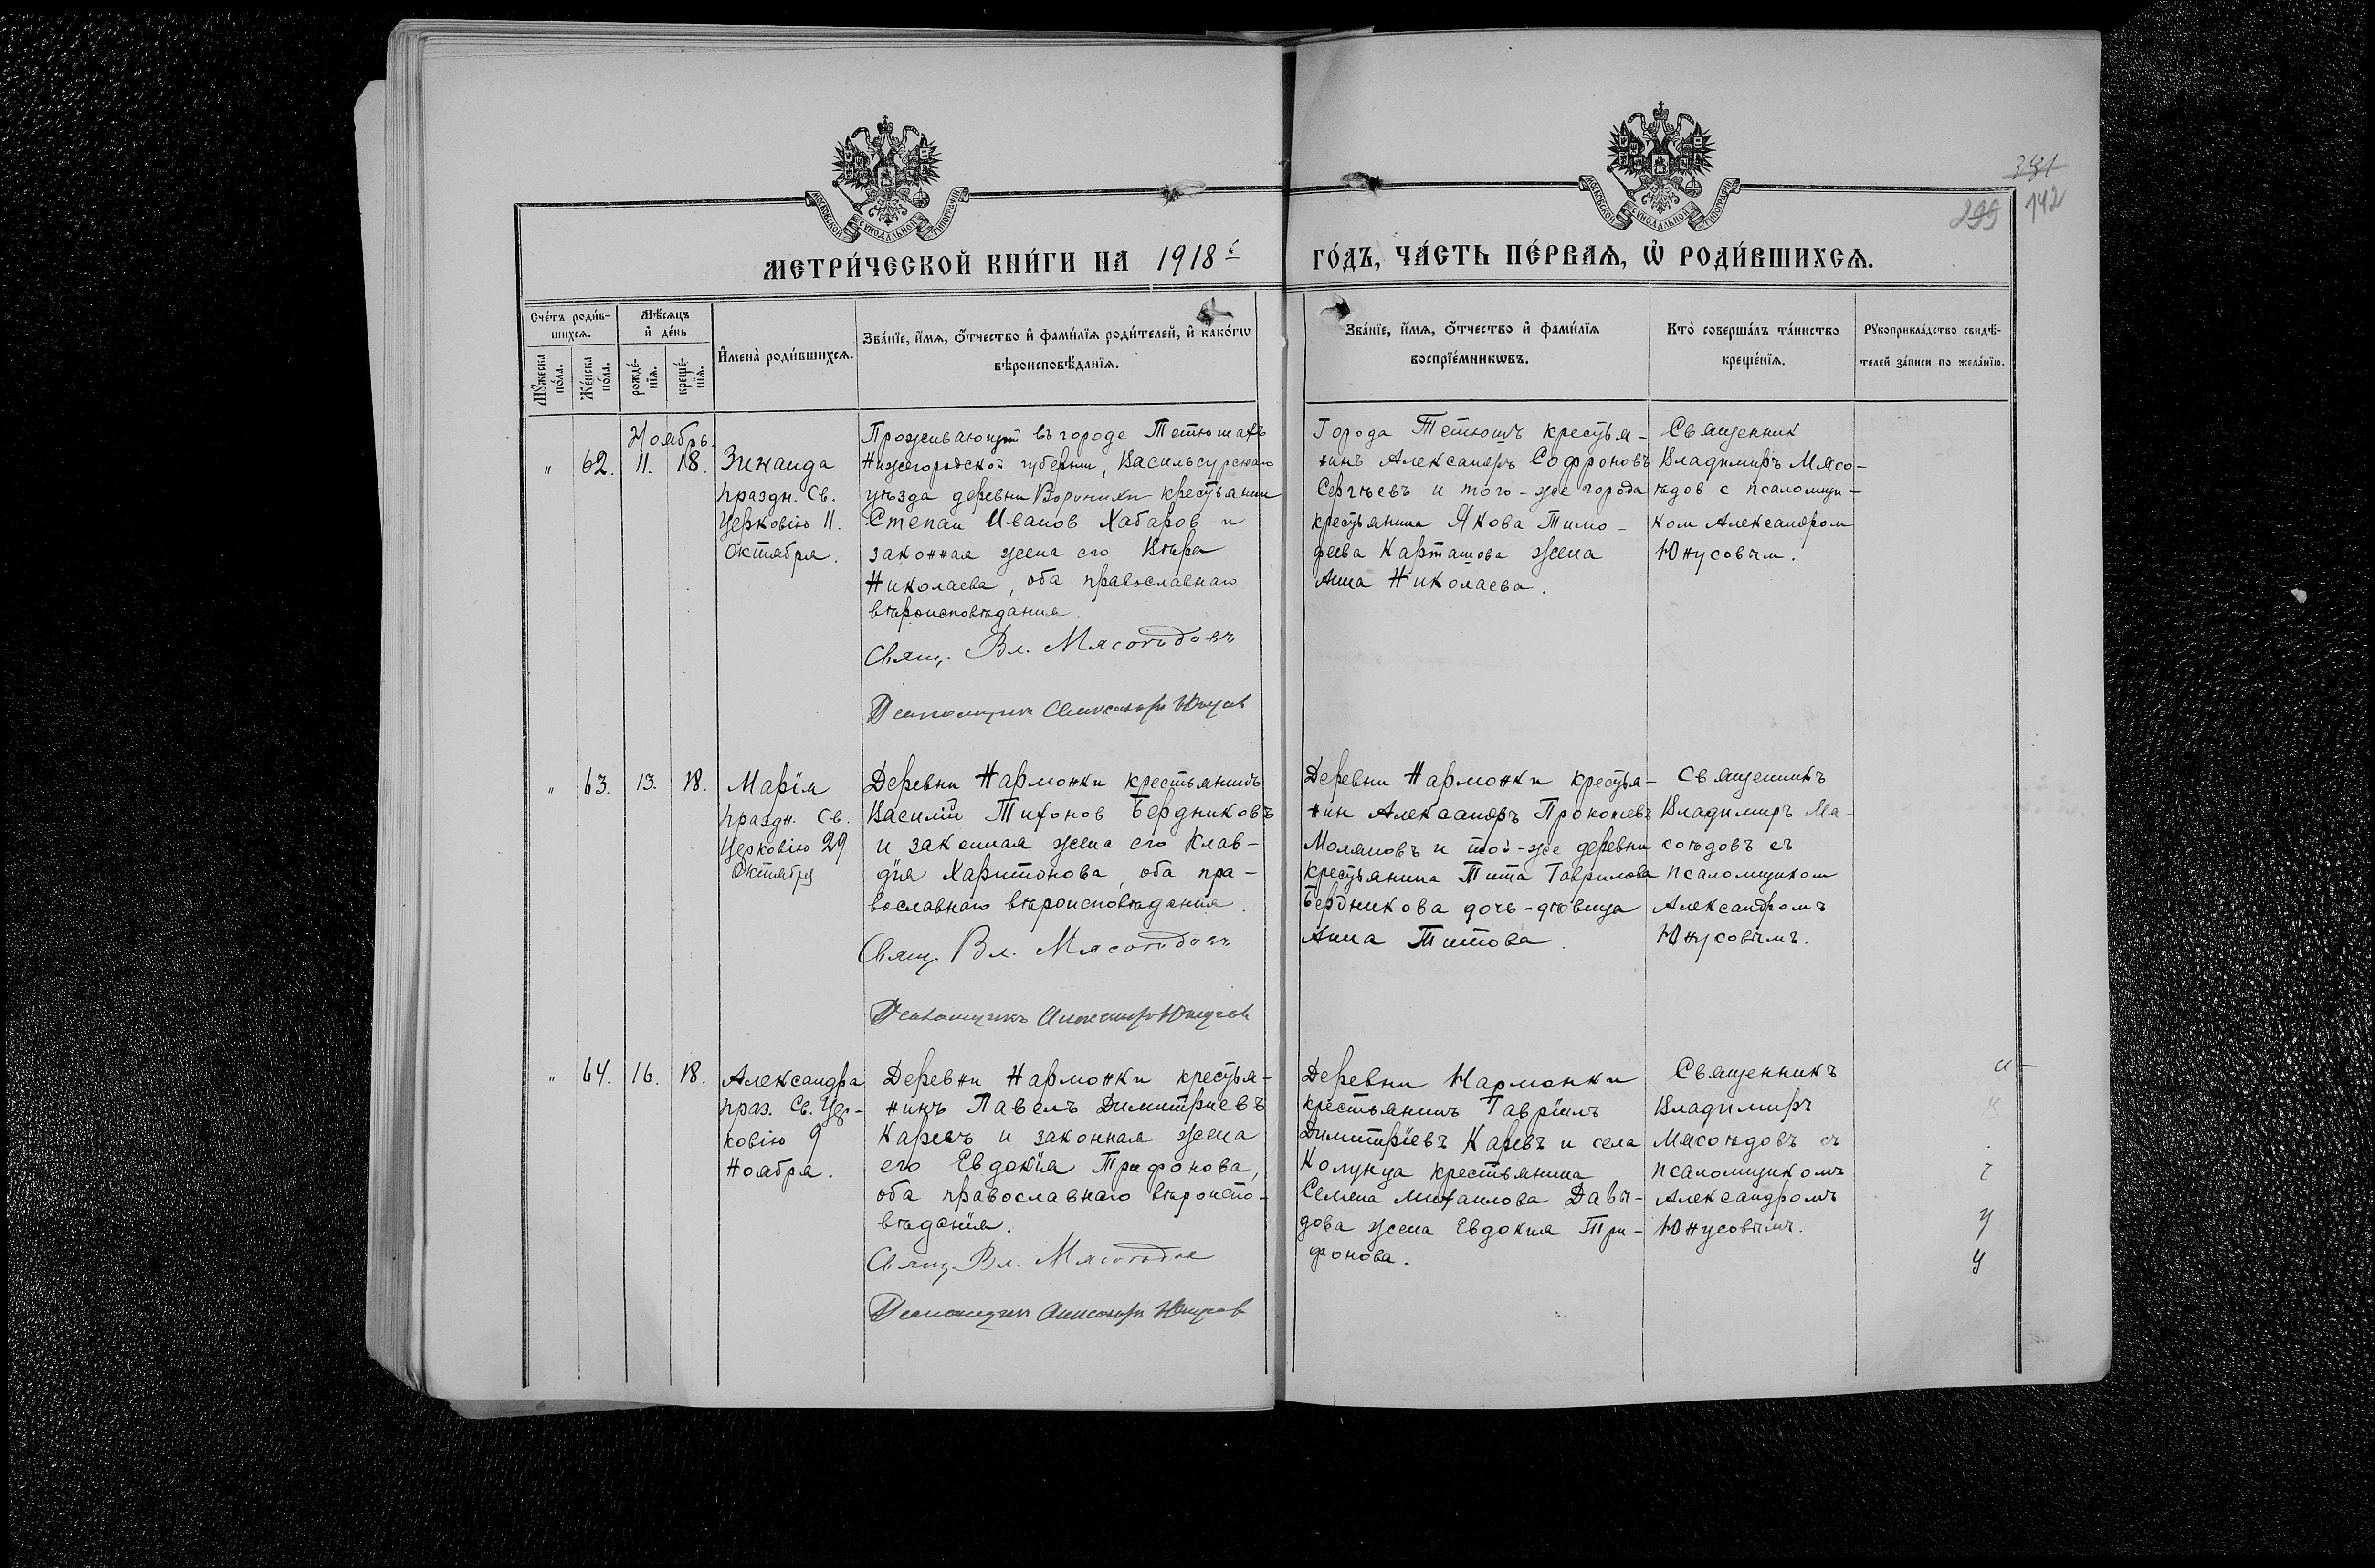 МОСКОВСКОЙ СУНОДАЛЬНОЙ ТИПОГРАФІИ
МОСКОВСКОЙ СУНОДАЛЬНОЙ ТИПОГРАФІИ
МЕТРИ́ЧЕСКОЙ КНИ́ГИ НА 1918 й
ГО́ДЪ, ЧА́СТЬ ПЕ́РВАѦ, Ѡ҆ РОДИ́ВШИХСѦ.
381
299 142
Сче́тъ роди́в-
шихсѧ.
Мꙋ́жеска по́ла.
Же́нска по́ла.
Мѣ́сѧцъ
и҆ де́нь
рожде́-
нїѧ.
креще́-
нїѧ.
И҆мена̀ роди́вшихсѧ.
Зва́нїе, и҆́мѧ, ѻ҆́тчество и҆ фами́лїѧ роди́телей, и҆ како́гѡ
вѣроисповѣ́данїѧ.
Зва́нїе, и҆́мѧ, ѻ҆́тчество и҆ фами́лїѧ
воспрїе́мникѡвъ.
Кто̀ соверша́лъ та́инство
креще́нїѧ.
Рꙋкоприкла́дство свидѣ́-
телей за́писи по жела́нїю.
Ноябрь.
" 62. 11. 18.
Зинаида
праздн. Св.
Церковію 11.
Октября.
Проживающий въ городе Тетюшахъ
Нижегородской губернии, Васильсурскаго
уѣзда деревни Воронихи крестьянин
Степан Иванов Хабаров и
законная жена его Вѣра
Николаева, оба православнаго
вѣроисповѣдания.
Свящ. Вл. Мясоѣдовъ
Псаломщик Александръ Юнусов
Города Тетюшъ крестья-
нинъ Александръ Софроновъ
Сергѣевъ и того-же города
крестьянина Якова Тимо-
феева Карташова жена
Анна Николаева.
Священник
Владимиръ Мясо-
ѣдов с псаломщи-
ком Александром
Юнусовым.
" 63. 13. 18.
Марія
праздн. Св.
Церковію 29
Октября
Деревни Нармонки крестьянинъ
Василій Тихонов Бердниковъ
и законная жена его Клав-
дія Харитонова, оба пра-
вославнаго вѣроисповѣдания.
Свящ. Вл. Мясоѣдовъ
Псаломщикъ Александръ Юнусов
Деревни Нармонки крестья-
нин Александръ Прокопьевъ
Моляковъ и той-же деревни
крестьянина Тита Гаврилова
Бердникова дочь-дѣвица
Анна Титова.
Священникъ
Владимиръ Мя-
соѣдовъ съ
псаломщиком
Александромъ
Юнусовымъ.
" 64. 16. 18.
Александра
праз. Св. Цер-
ковію 9
Ноября.
Деревни Нармонки крестья-
нинъ Павелъ Димитриевъ
Каревъ и законная жена
его Евдокія Трифонова,
оба православнаго вѣроиспо-
вѣданія.
Свящ. Вл. Мясоѣдов
Псаломщик Александръ Юнусов
Деревни Нармонки
крестьянинъ Гавріилъ
Димитріевъ Каревъ и села
Колунца крестьянина
Семена Михаилова Давы-
дова жена Евдокия Три-
фонова.
Священникъ
Владимиръ
Мясоѣдовъ съ
псаломщикомъ
Александромъ
Юнусовымъ.